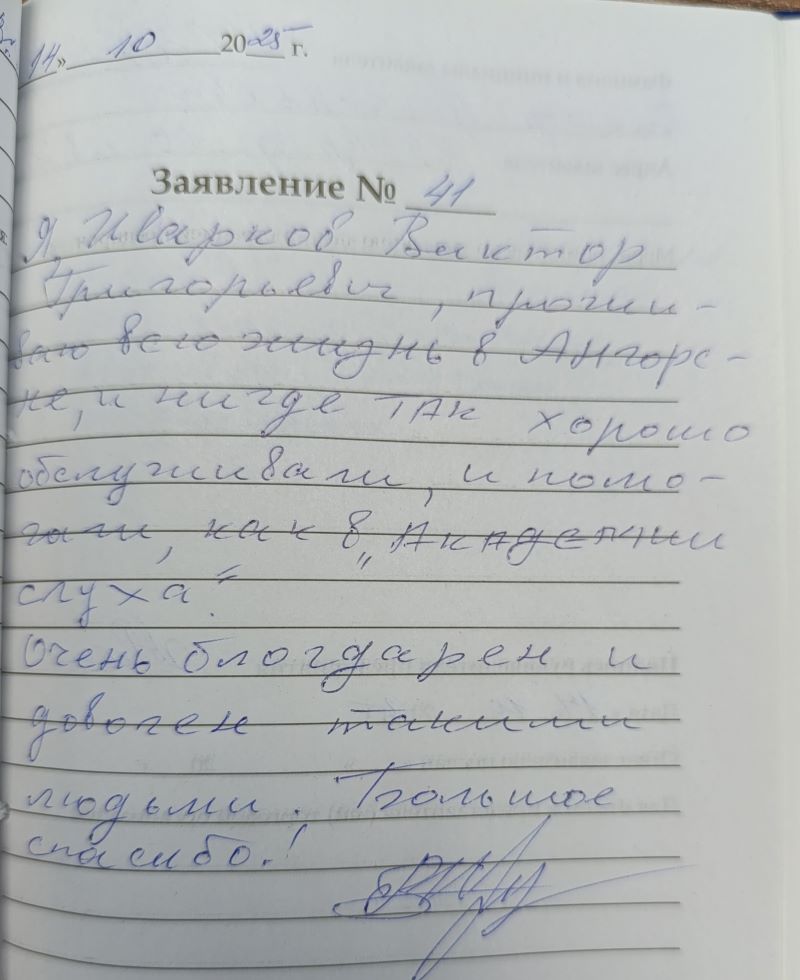 14» 10 2025 г.
Заявление № 41
Я, Иварков Виктор
Григорьевич, прожи-
ваю всю жизнь в Ангарс-
ке, и нигде так хорошо
обслуживали, и помо-
гали, как в „Академии
слуха".
Очень благдарен и
доволен такими
людьми. Большое
спасибо.!